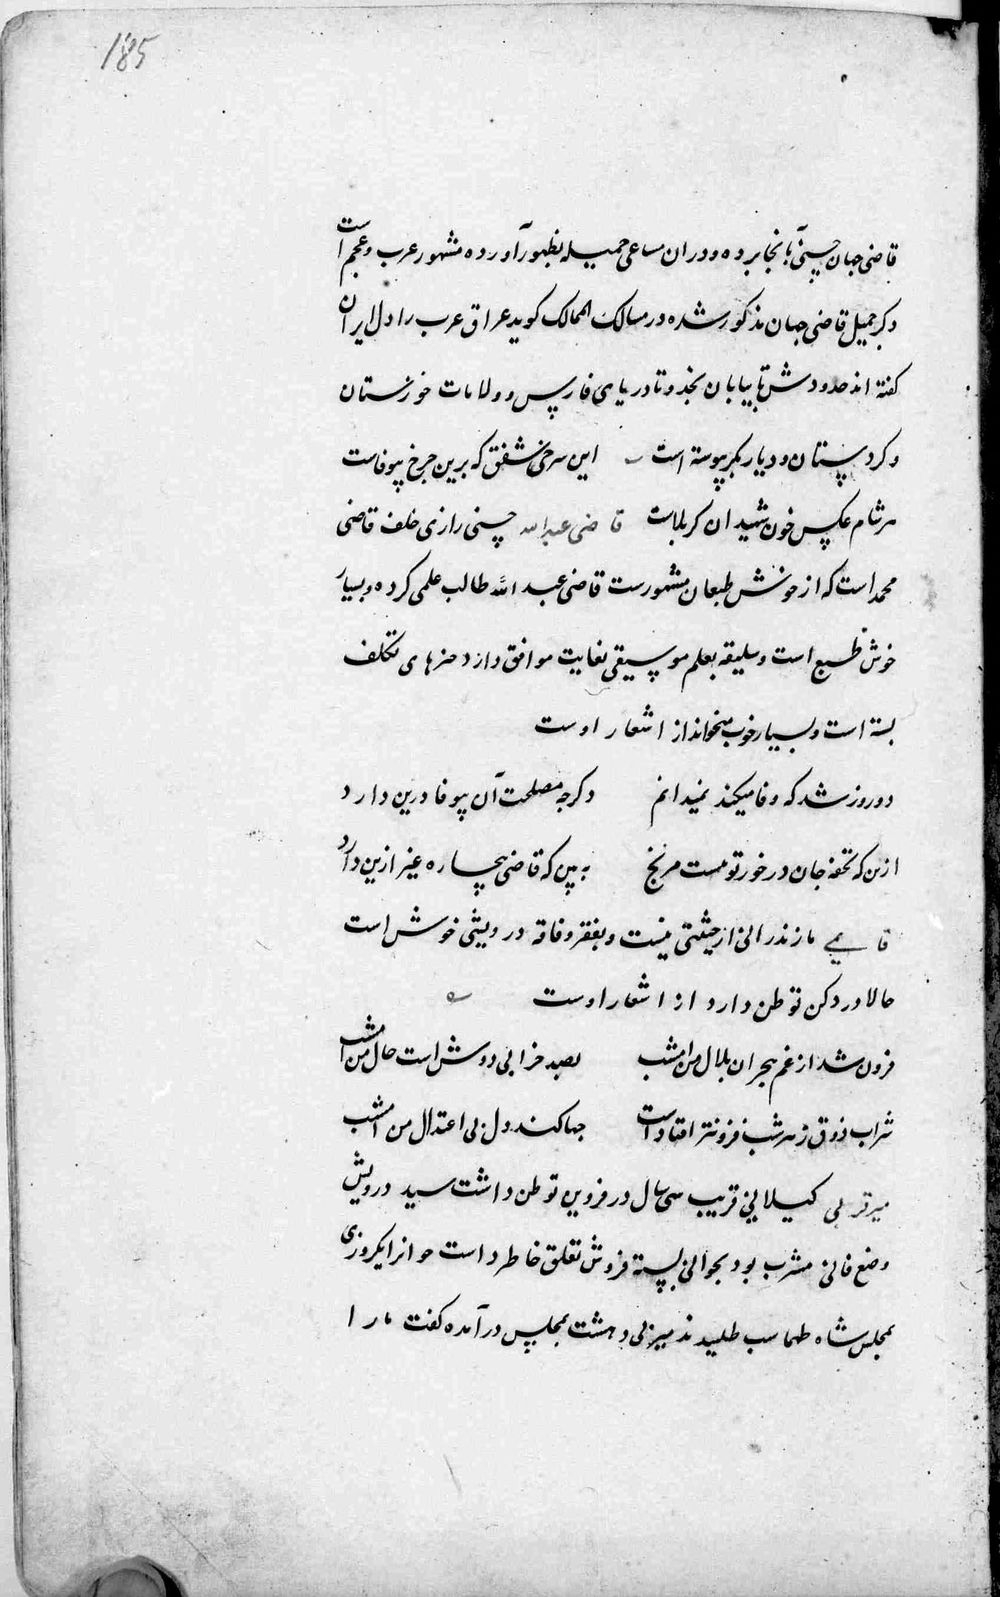 185
قاضی جهان حسینی آبانجا برده و دران مساعی جمیله بظهور آورده مشهور عرب و عجم است
ذکر جمیل قاضی جهان مذکور شده در مسالک الممالک کوید عراق عرب را دل ایران
کفته اند حدودش تا بیابان نجد و تا دریای فارس و ولایات خوزستان
و کردستان و دیار بکر پیوسته است این سرخی شفق که برین چرخ بیوفاست
هر شام عکس خون شهیدان کربلاست قاضی عبدالله حسنی رازی خلف قاضی
محمد است که از خوش طبعان مشهورست قاضی عبد الله طالب علمی کرده و بسیار
خوش طبع است و سلیقه بعلم موسیقی بغایت موافق دارد های تکلف
بسته است و بسیار خوب میخواند از اشعار اوست
دو روز شد که وفا میکند نمیدانم دکر چه مصلحت آن بیوفا درین دارد
ازین که تحفه جان در خور تو نیست مرنج به بین که قاضی بیچاره غیر ازین دارد
مازندرانی از حیثیتی نیست و بفقر و فاقه درویشی خوش است
حالا در دکن توطن دارد از اشعار اوست
فزون شد از غم هجران ملال من امشب بصد خرابی دوش است حال من امشب
شراب ذوق ز هر شب فزونتر افتاد است جها کند دل بی اعتدال من امشب
میر کیلانی قریب سی سال در قزوین توطن داشت سید درویش
وضع فانی مشرب بود بجوانی پسته فروش تعلق خاطر داست جوانرا یکروزی
بمجلس شاه طهماسب طلبیدند میر بی دهشت بمجلس درآمده کفت مارا